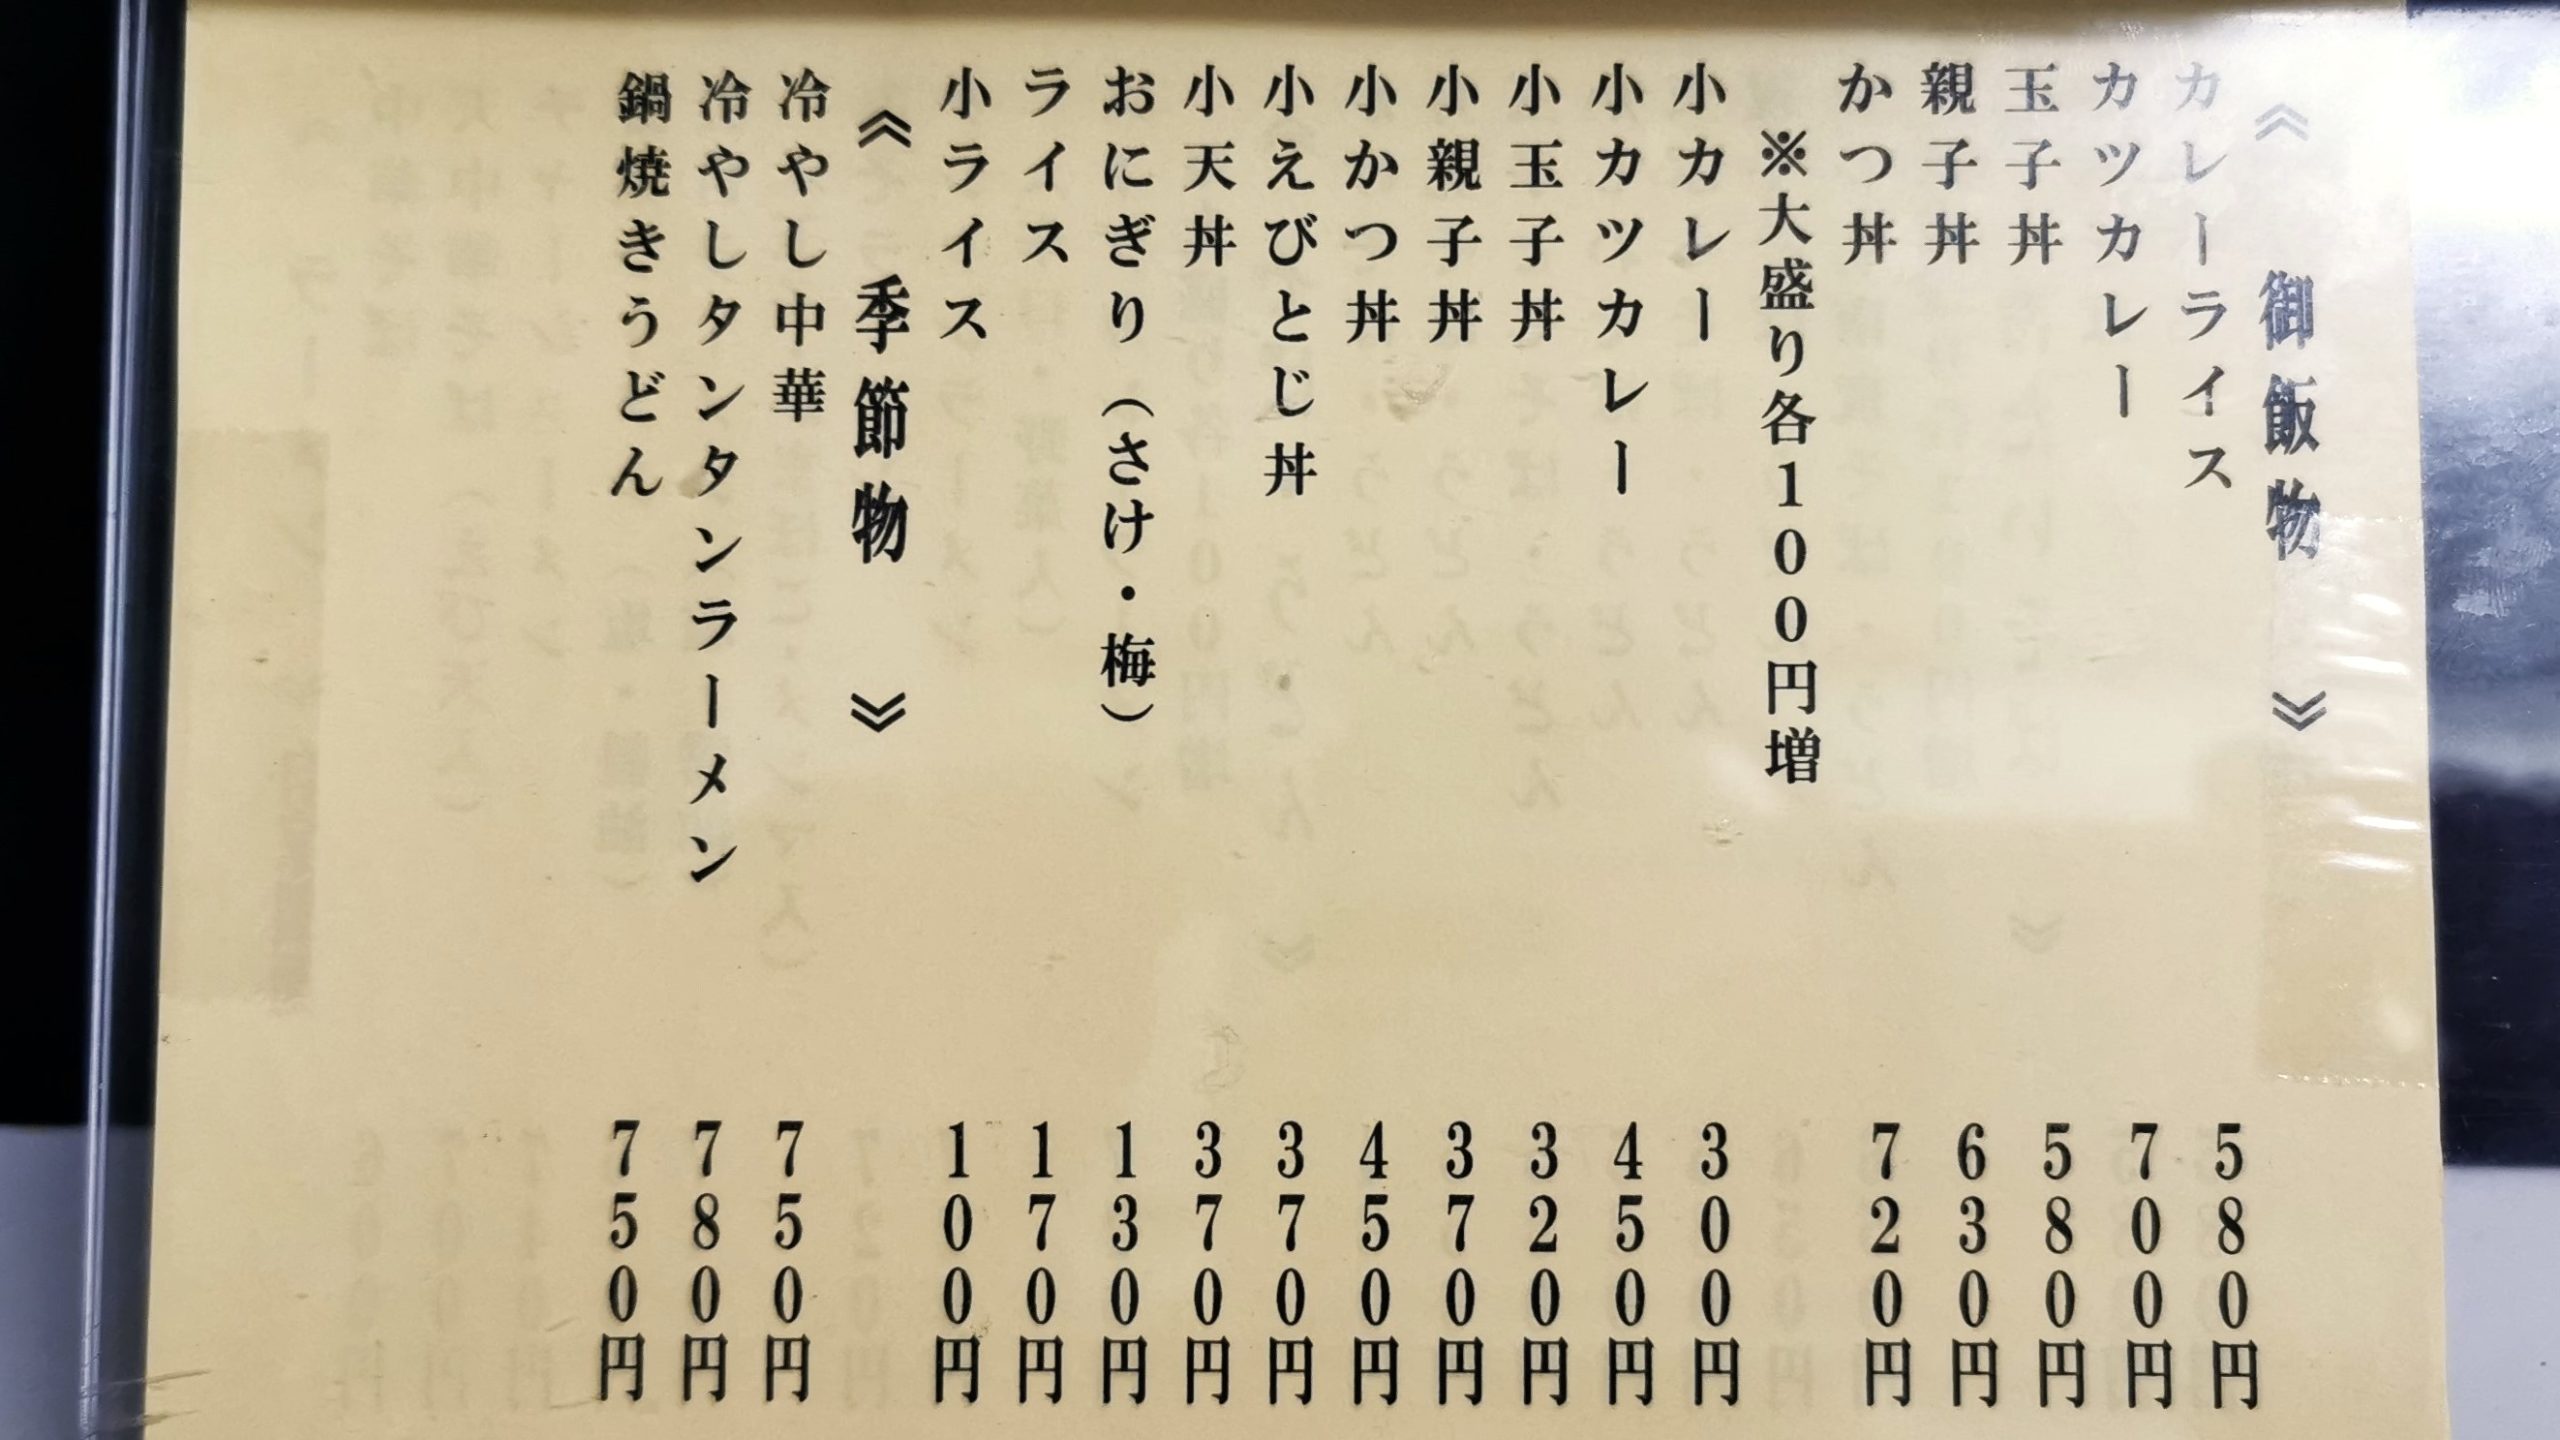 《 御飯物 》
カレーライス 580円
カツカレー 700円
玉子丼 580円
親子丼 630円
かつ丼 720円
※大盛り各100円増
小カレー 300円
小カツカレー 450円
小玉子丼 320円
小親子丼 370円
小かつ丼 450円
小えびとじ丼 370円
小天丼 370円
おにぎり（さけ・梅） 130円
ライス 170円
小ライス 100円
《 季節物 》
冷やし中華 750円
冷やしタンタンラーメン 780円
鍋焼きうどん 750円